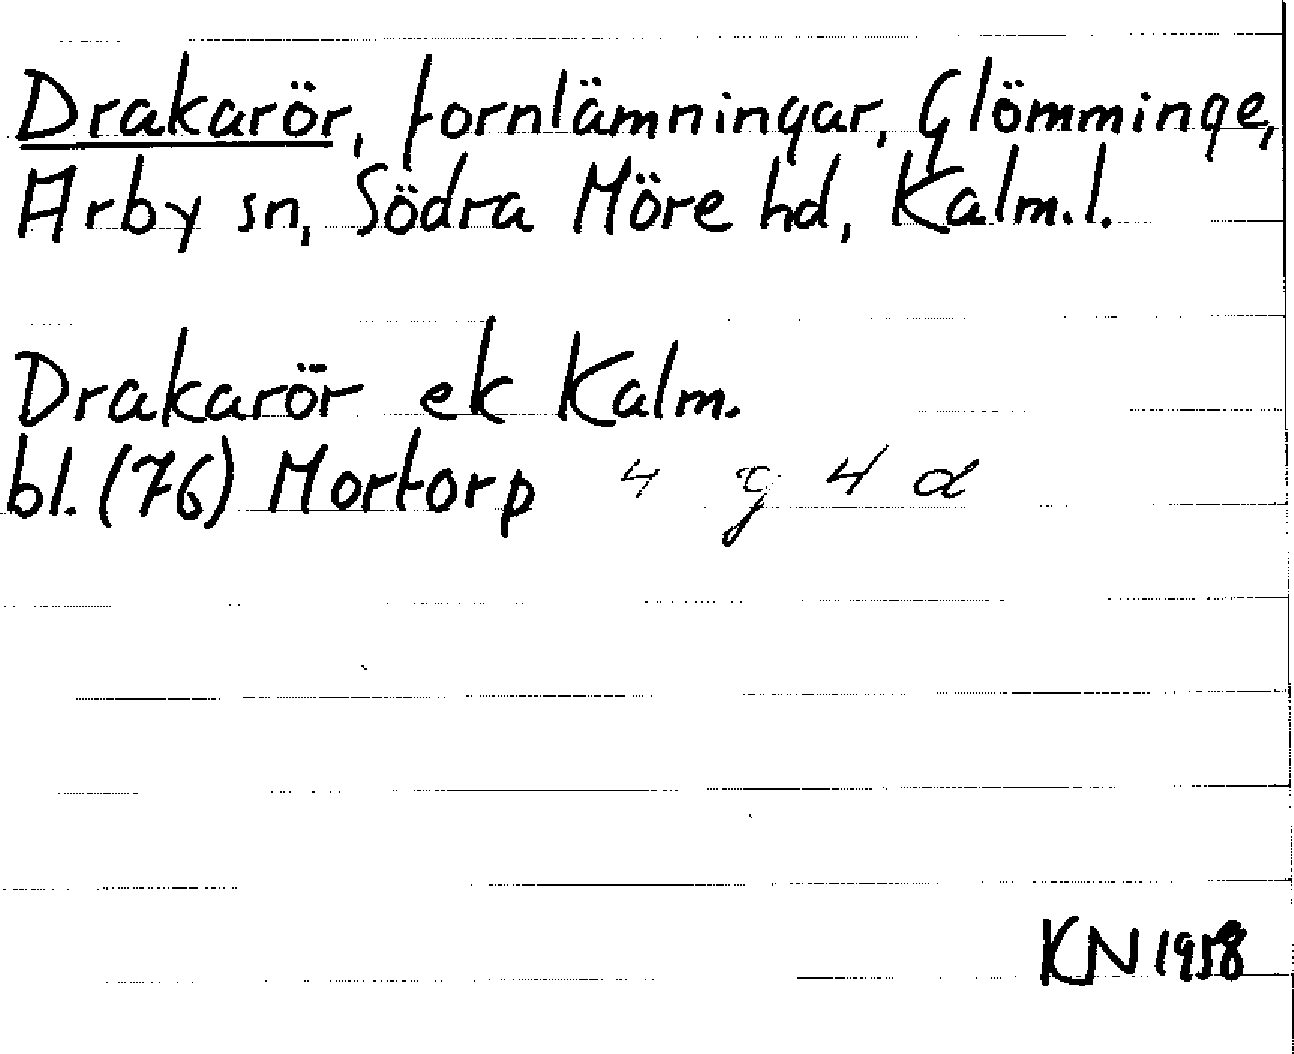 Drakarör, fornlämningar, Glömminge,
Arby sn, Södra Möre hd, Kalm.l.
Drakarör ek Kalm.
bl. (76) Mortorp 4 g 4 d
KN 1958